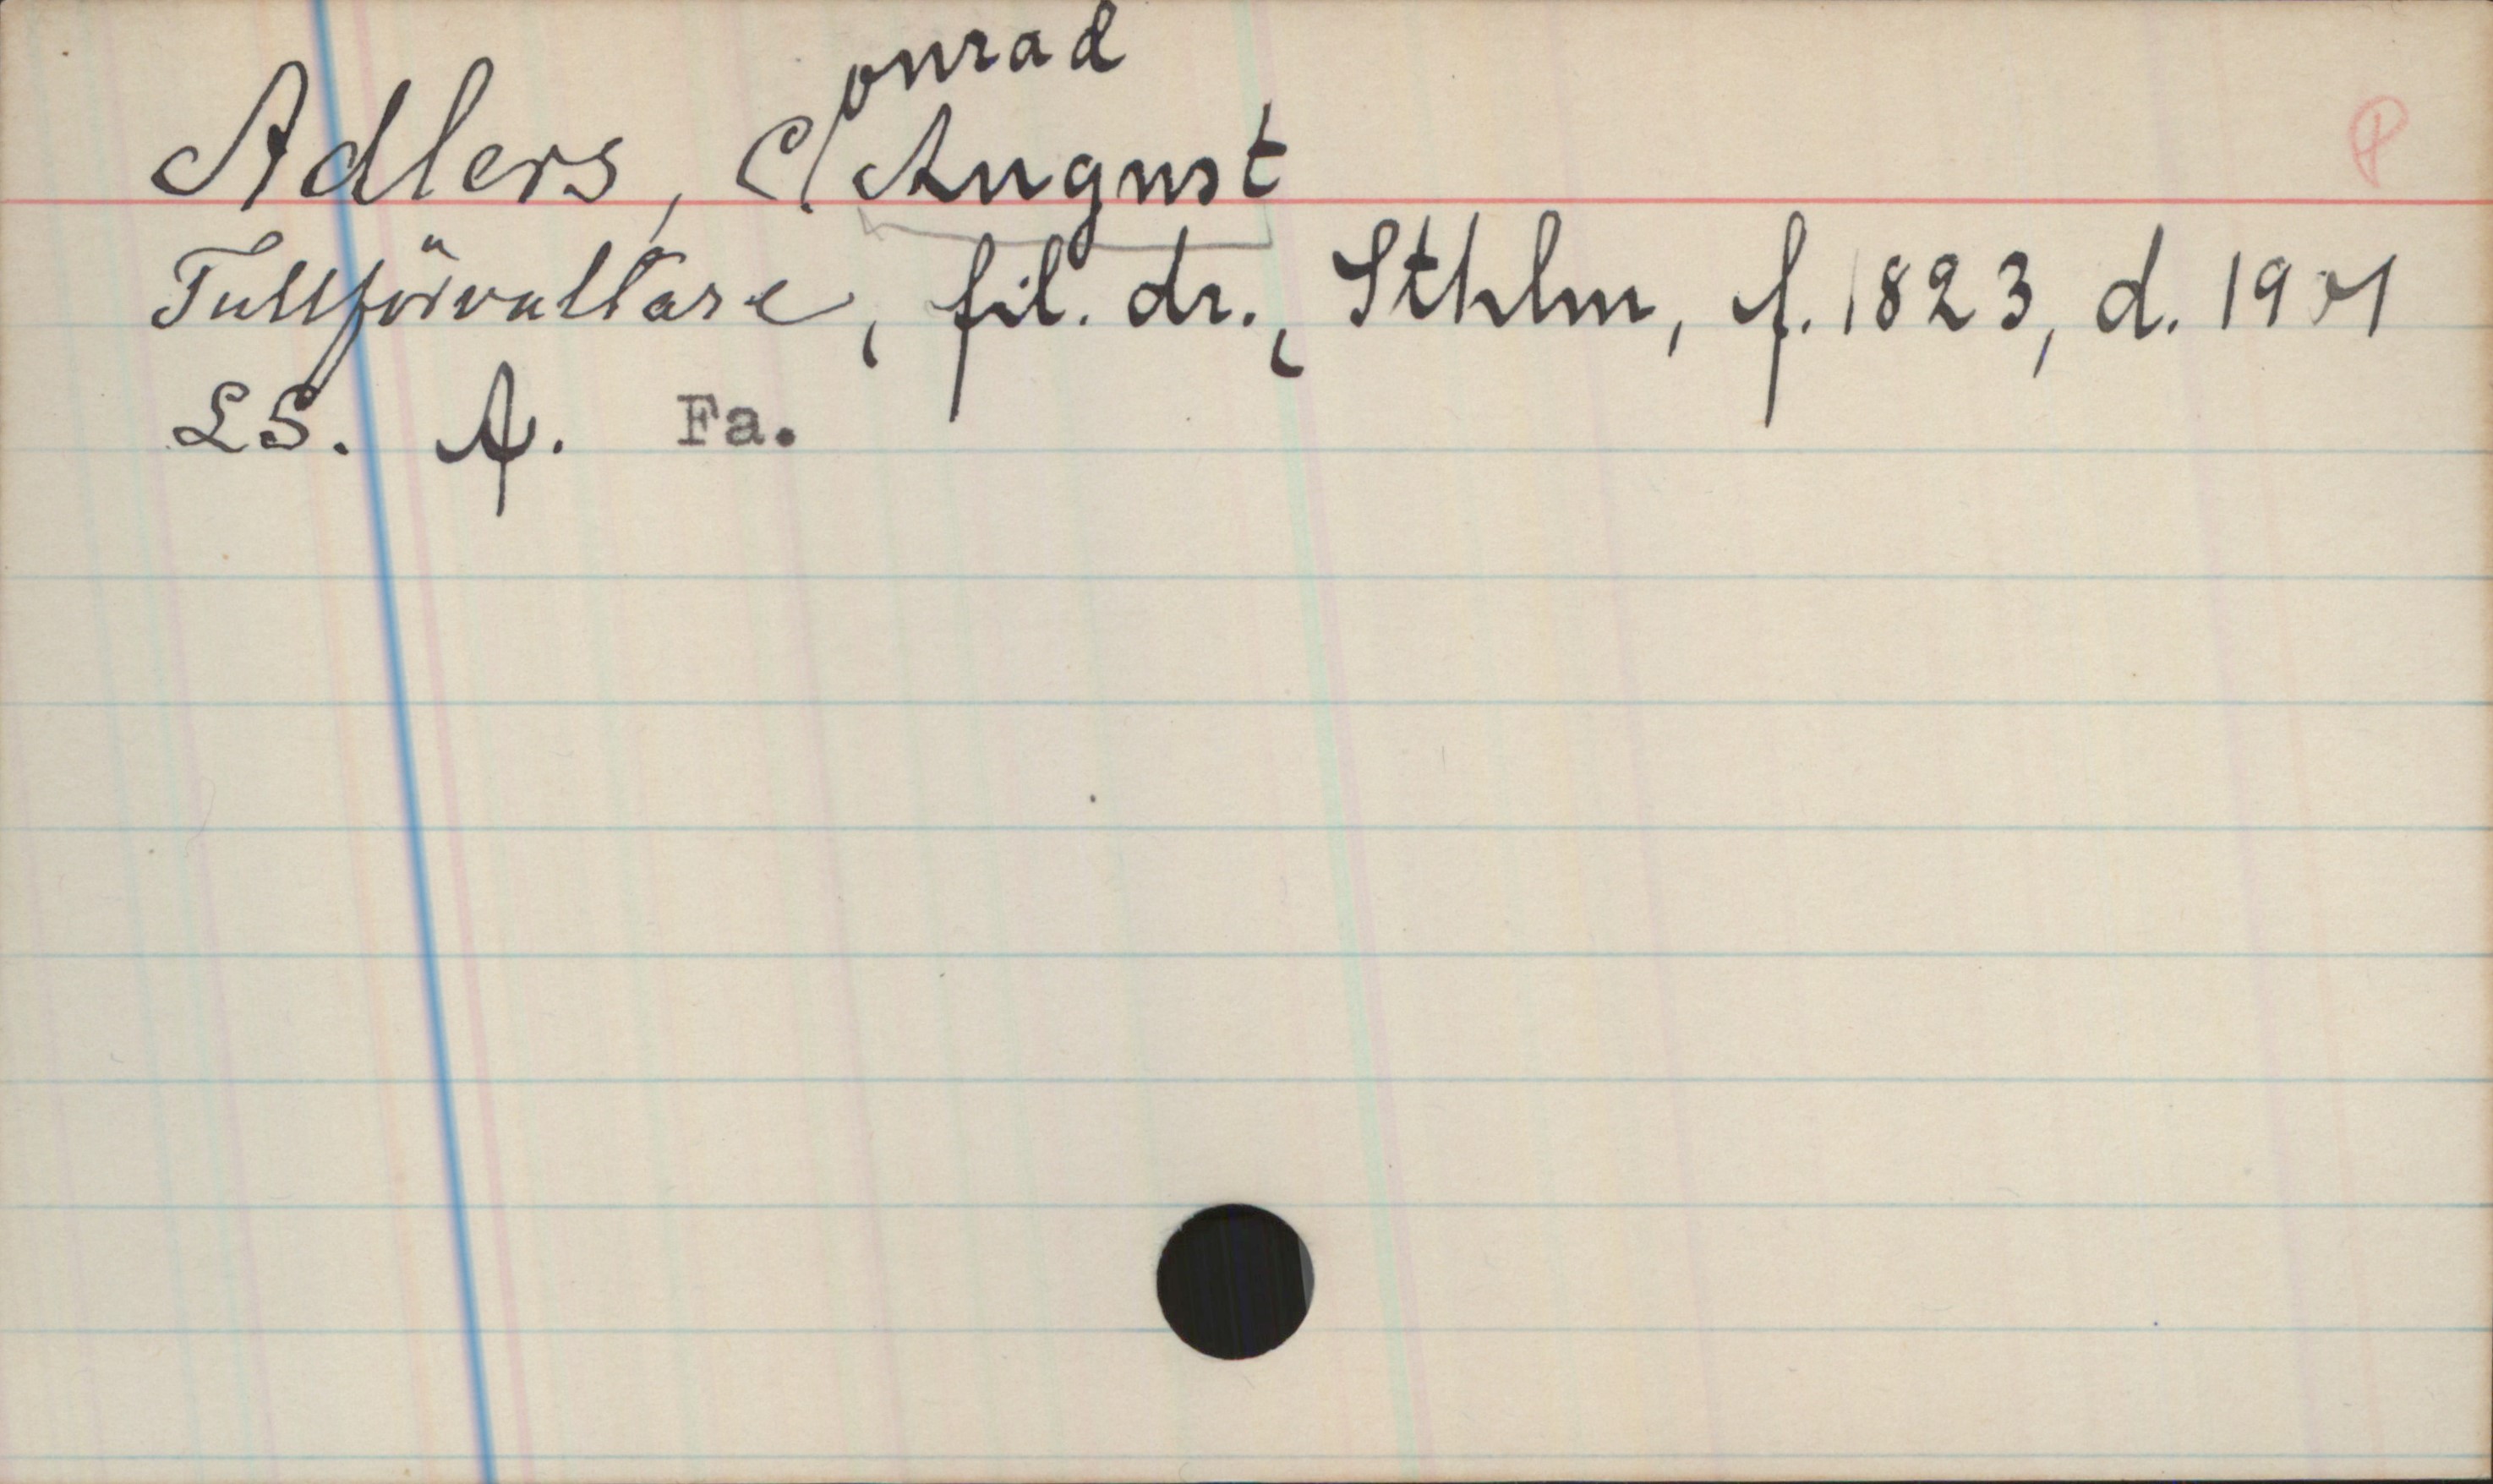 onrad
Adlers, C. August
P
Tullförvaltare, fil. dr., Sthlm, f. 1823, d. 1901
LS. A. Fa.